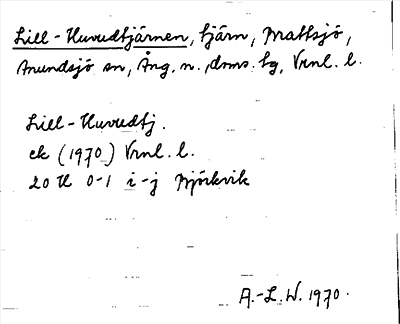 Lill-Huvudtjärnen, tjärn, Mattsjö,
Anundsjö sn, Ång. n., doms. tg, Vrnl. l.
Lill-Huvudtj.
ek (1970) Vrnl. l.
20 H 0-1 i-j Björkvik
A.-L. W. 1970.